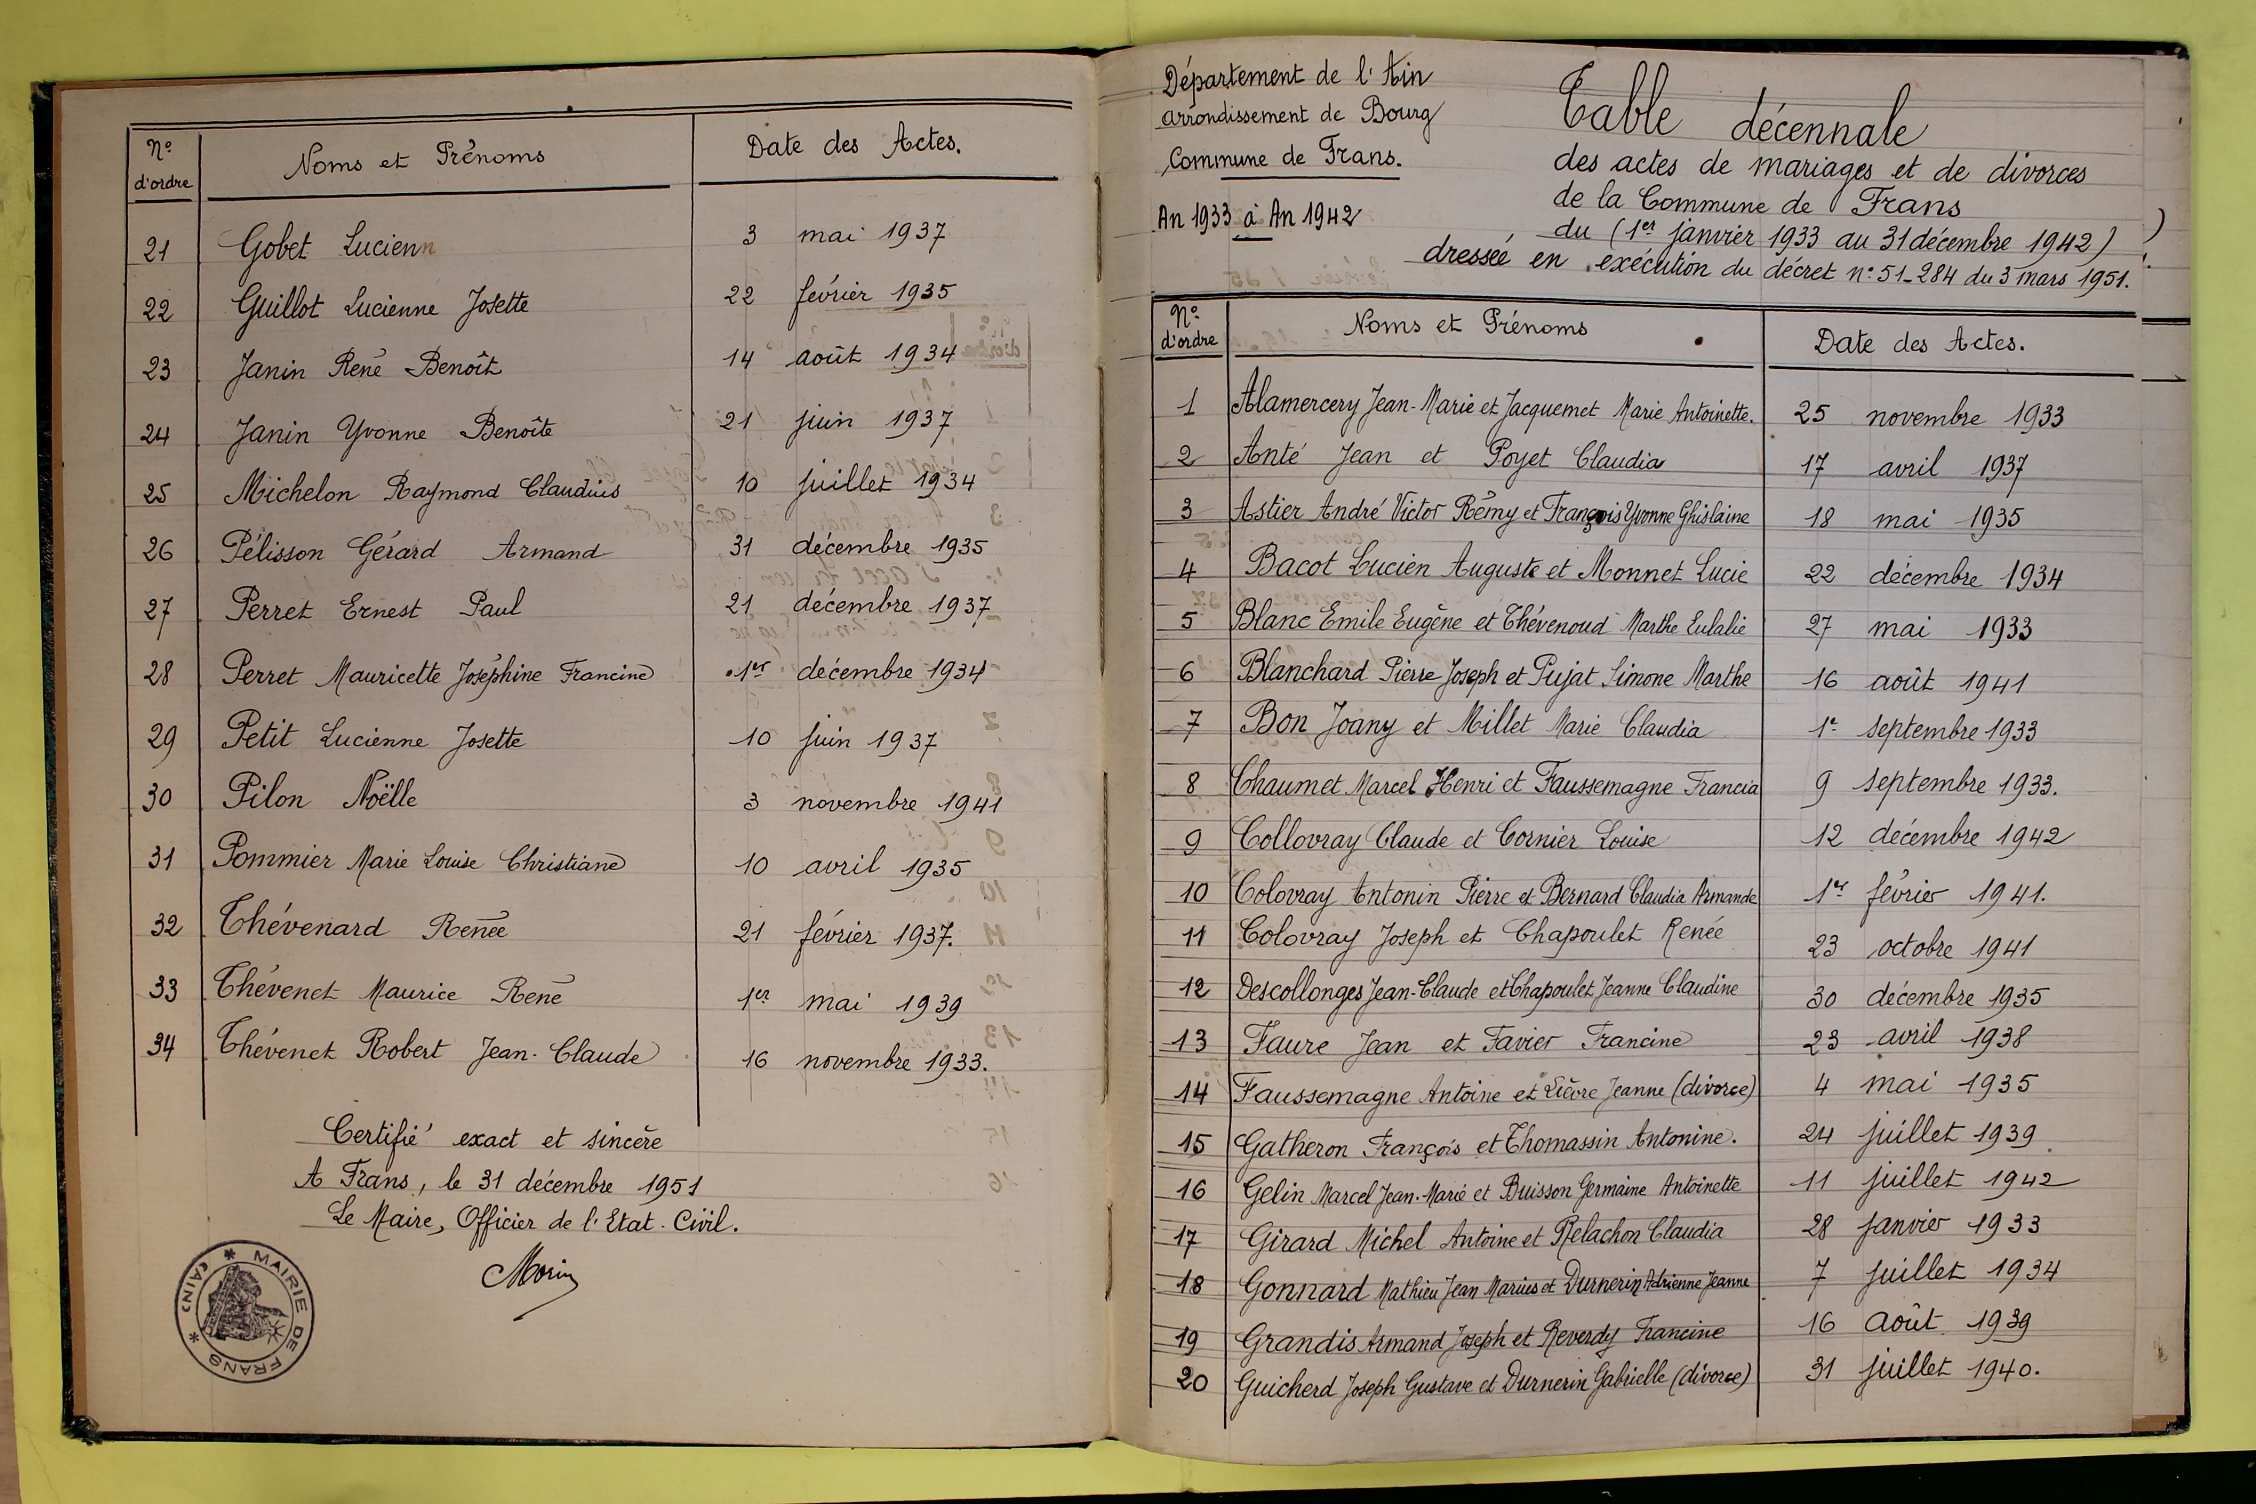 N° d'ordre Noms et Prénoms Date des Actes.
21 Gobet Lucienn 3 mai 1937
22 Guillot Lucienne Josette 22 février 1935
23 Janin René Benoît 14 août 1934
24 Janin Yvonne Benoîte 21 juin 1937
25 Michelon Raymond Claudius 10 juillet 1934
26 Pélisson Gérard Armand 31 décembre 1935
27 Perret Ernest Paul 21 décembre 1937
28 Perret Mauricette Joséphine Francine 1er décembre 1934
29 Petit Lucienne Josette 10 juin 1937
30 Pilon Noëlle 3 novembre 1941
31 Pommier Marie Louise Christiane 10 avril 1935
32 Thévenard Renée 21 février 1937.
33 Thévenet Maurice René 1er mai 1939
34 Thévenet Robert Jean-Claude 16 novembre 1933.
Certifié exact et sincère
A Frans, le 31 décembre 1951
Le Maire, Officier de l'Etat-Civil.
Morin
* MAIRIE DE FRANS * (AIN)
Département de l'Ain
arrondissement de Bourg
Commune de Frans.
An 1933 à An 1942
Table décennale
des actes de mariages et de divorces
de la Commune de Frans
du (1er janvier 1933 au 31 décembre 1942)
dressée en exécution du décret n° 51-284 du 3 mars 1951.
N° d'ordre Noms et Prénoms Date des Actes.
1 Alamercery Jean-Marie et Jacquemet Marie Antoinette. 25 novembre 1933
2 Anté Jean et Poyet Claudia 17 avril 1937
3 Astier André Victor Rémy et François Yvonne Ghislaine 18 mai 1935
4 Bacot Lucien Auguste et Monnet Lucie 22 décembre 1934
5 Blanc Emile Eugène et Thévenoud Marthe Eulalie 27 mai 1933
6 Blanchard Pierre Joseph et Pujat Simone Marthe 16 août 1941
7 Bon Joany et Millet Marie Claudia 1e septembre 1933
8 Chaumet Marcel Henri et Faussemagne Francia 9 septembre 1933.
9 Collovray Claude et Cornier Louise 12 décembre 1942
10 Colovray Antonin Pierre et Bernard Claudia Armande 1er février 1941.
11 Colovray Joseph et Chapoulet Renée 23 octobre 1941
12 Descollonges Jean-Claude et Chapoulet Jeanne Claudine 30 décembre 1935
13 Faure Jean et Favier Francine 23 avril 1938
14 Faussemagne Antoine et Lièvre Jeanne (divorce) 4 mai 1935
15 Gatheron François et Thomassin Antonine. 24 juillet 1939
16 Gelin Marcel Jean-Marie et Buisson Germaine Antoinette 11 juillet 1942
17 Girard Michel Antoine et Relachon Claudia 28 janvier 1933
18 Gonnard Mathieu Jean Marius et Durnerin Adrienne Jeanne 7 juillet 1934
19 Grandis Armand Joseph et Reverdy Francine 16 août 1939
20 Guicherd Joseph Gustave et Durnerin Gabrielle (divorce) 31 juillet 1940.